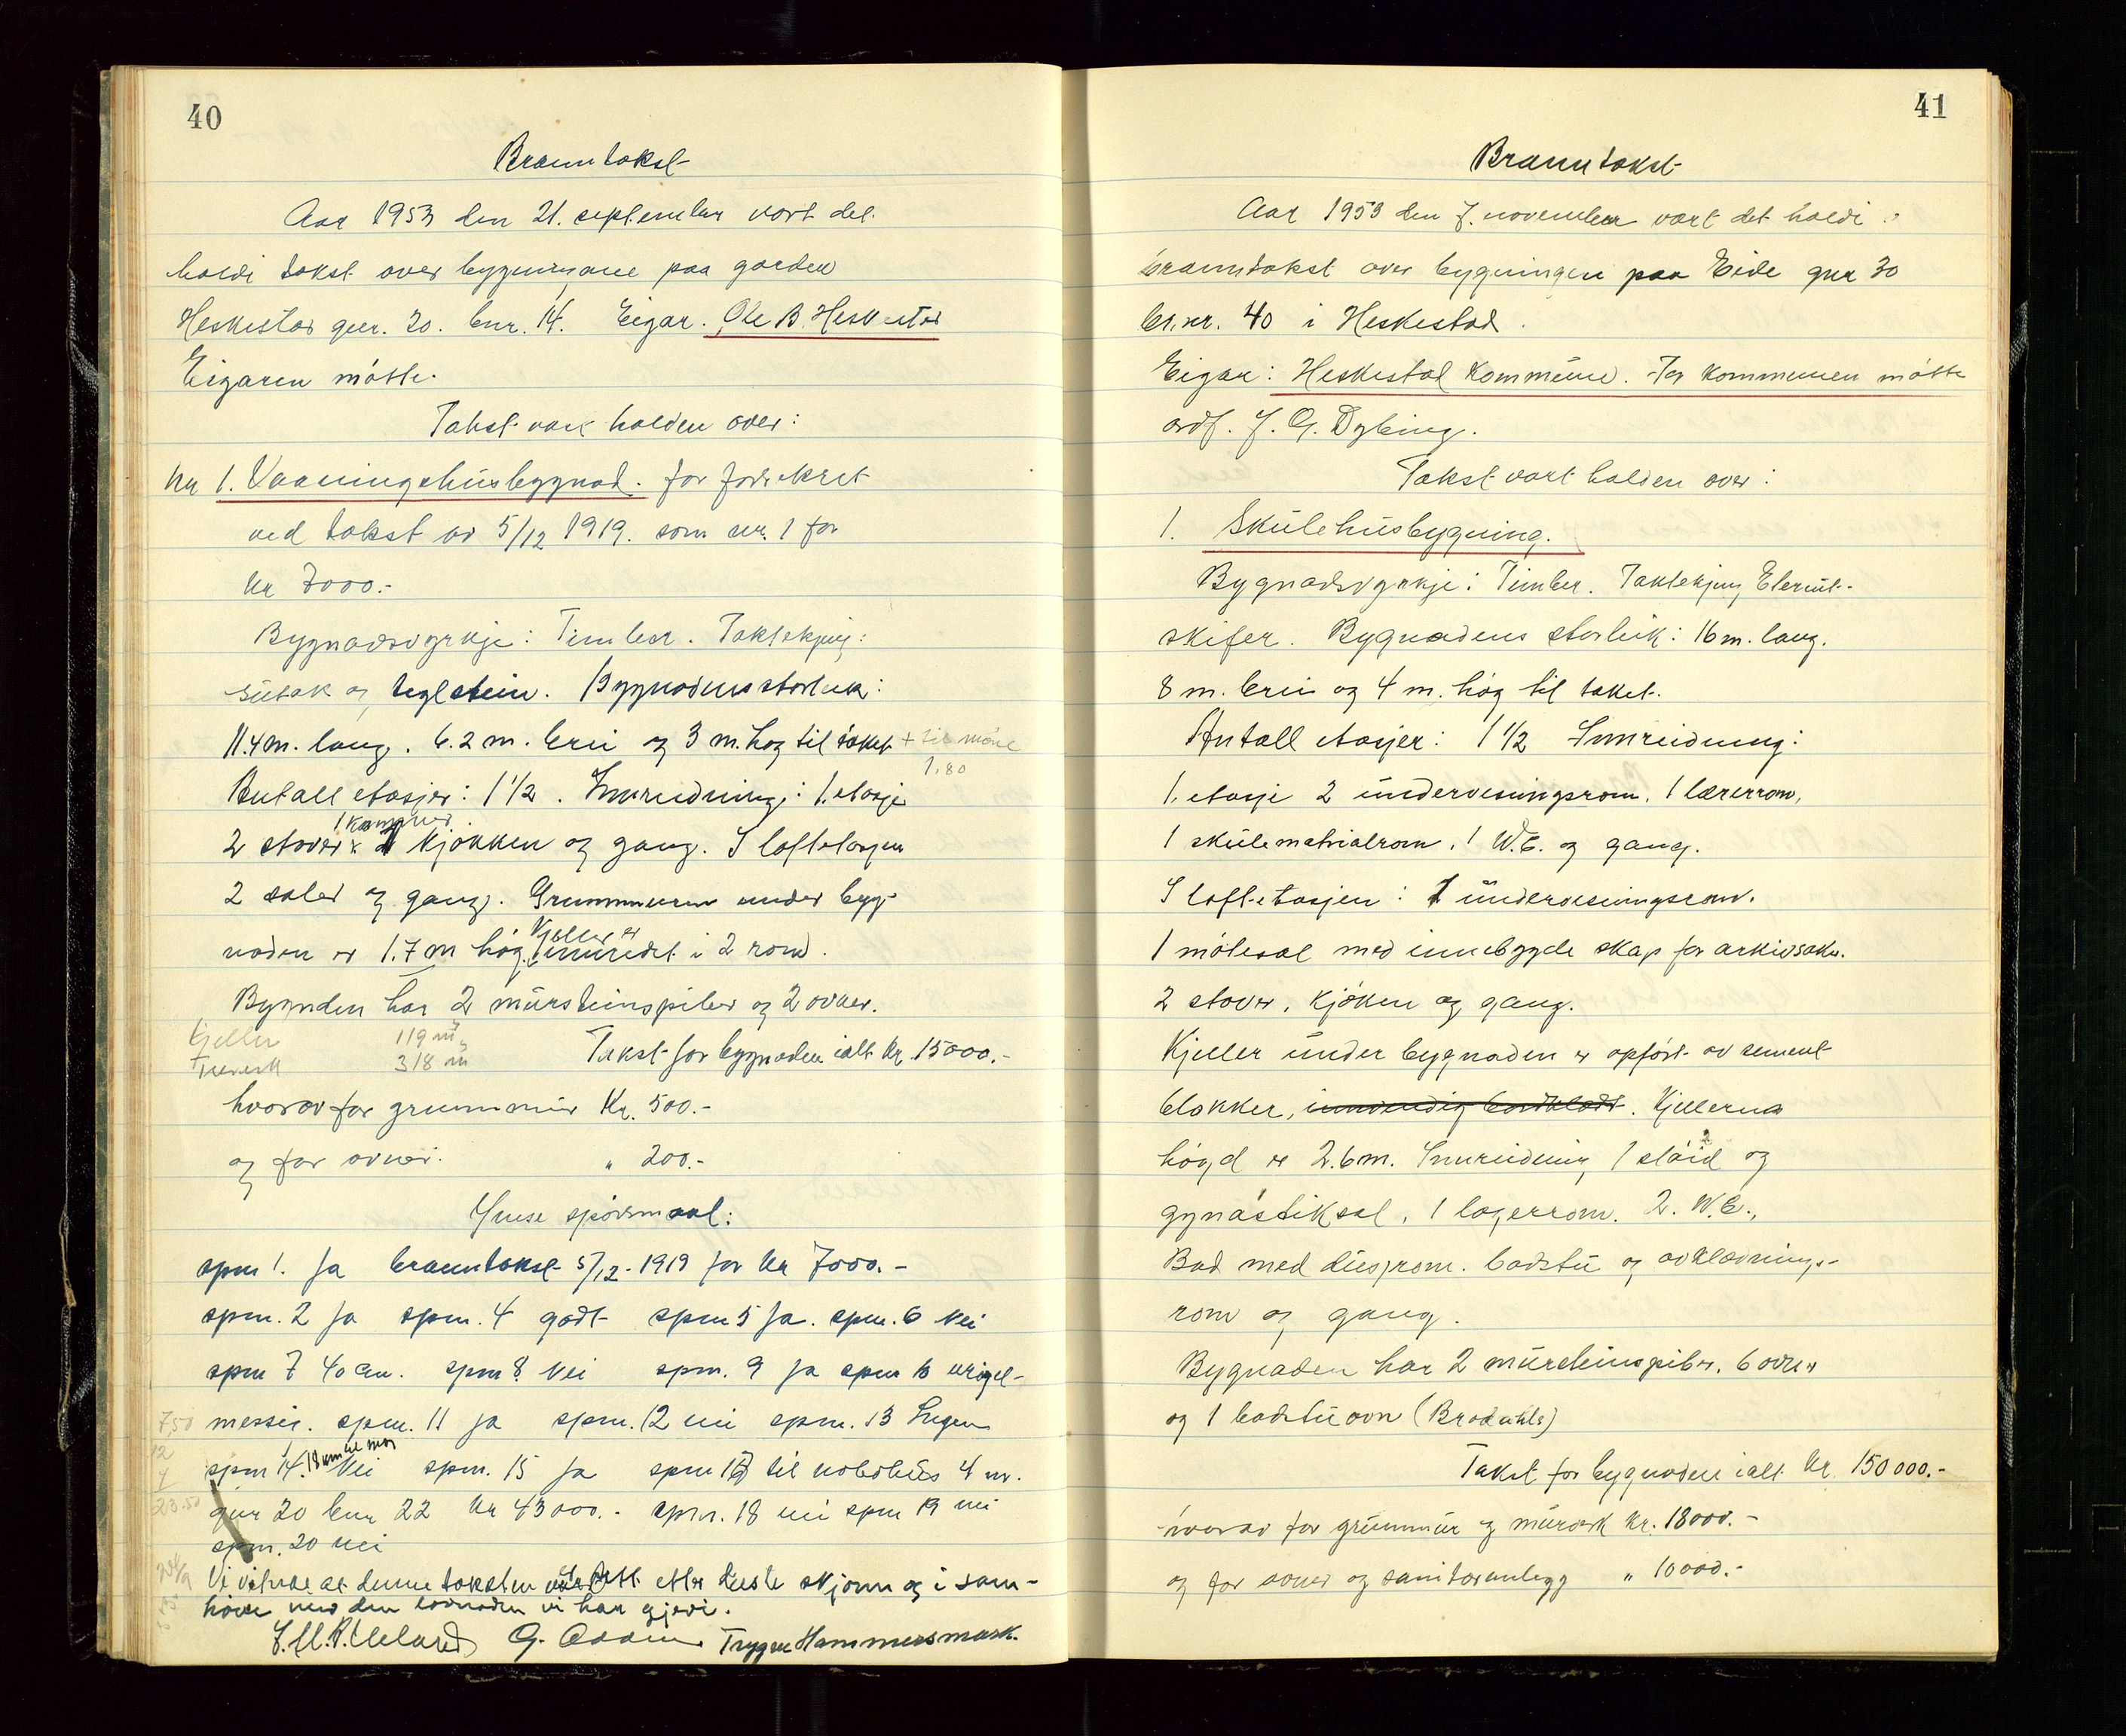 40
Branntakst
Aar 1953 den 21. september vart det
haldi takst over bygningane paa garden
Heskestad gnr. 20. bnr. 14. Eigar. Ole B. Heskestad
Eigaren møtte.
Takst vart halden over:
Nr 1. Vaaningshusbygnad. før forsekret
ved takst av 5/12 1919. som nr. 1 for
kr 7000.-
Bygnadsvyrkje: Timber. Taktekjing:
sutak og teglstein. Bygnadens storleik:
11.4 m. lang. 6.2 m. brei og 3 m. høg til taket + til møne
1.80
Antall etasjer: 1 1/2. Innreidning: 1. etasje
1 kammer
2 stover 1 kjøkken og gang. I loftetasjen
2 saler og gang. Grunnmuren under byg-
Kjeller er
naden er 1.7 m høg innredet i 2 rom.
Bygnden har 2 mursteinspiber og 2 ovner.
Kjeller 119 m³
Treverk 318 m³
Takst for bygnaden ialt kr. 15000.-
hvorav for grunnmur Kr. 500.-
og for ovner. " 200.-
Ymse spørsmaal:
spm 1. Ja branntakst 5/12-1919 for kr 7000.-
spm. 2 Ja spm. 4 godt spm 5 Ja. spm. 6 Nei
spm 7 40 cm. spm 8. Nei spm. 9 Ja spm 10 urigel-
7,50 messig. spm. 11 ja spm. 12 nei spm. 13 Ingen
12
spm 14. Nei spm. 15 Ja spm 16 til nabohus 4 m.
23.50 gnr 20 bnr 22 kr 43000.- spm. 18 nei spm 19 nei
spm. 20 nei
Vi vitnar at denne taksten er sett etter beste skjønn og i sam-
høve med den lovnaden vi har gjevi.
G. Trygve Hammersmark.
41
Branntakst
Aar 1953 den 7. november vart det haldi
branntakst over bygningen paa Eide gnr 30
br.nr. 40 i Heskestad.
Eigar: Heskestad Kommune. For kommunen møtte
ordf. J. G. Dybing.
Takst vart halden over:
1. Skulehusbygning.
Bygnadsvyrkje: Timber. Taktekjing Eternit-
skifer. Bygnadens storleik: 16 m. lang.
8 m. brei og 4 m. høg til taket.
Antall etasjer: 1 1/2 Innreidning:
1. etasje 2 undervisningsrom. 1 lærerrom,
1 skulematrialrom, 1 W.C. og gang.
I loftetasjen: 1 undervisningsrom.
1 møtesal med innebygde skap for arkivsaker.
2 stover, kjøken og gang.
Kjeller under bygnaden er opført av sement-
blokker, innvendig bordkledt. Kjellerns
høgd er 2.6 m. Innreidning 1 sløid og
gynastiksal, 1 lagerrom. 2. W.C.,
Bad med dusjrom. badstu og avklædnings-
rom og gang.
Bygnaden har 2 mursteinspiber, 6 ovner
og 1 badstuovn
Takst for bygnaden ialt kr. 150000.-
hvorav for grunnmur og murverk kr. 18000.-
og for ovner og sanitæranlegg " 10000.-